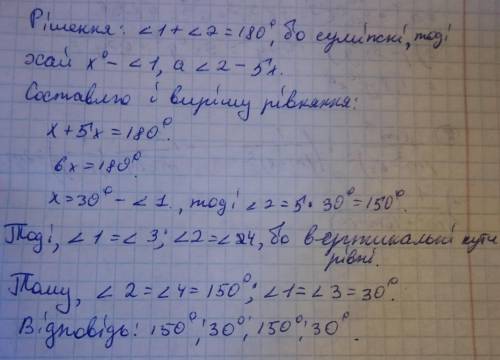 Рішення: ∠1+∠2=180°, бо суміжні, тоді
хай x° - ∠1, а ∠2 - 5x.
Составлю і вирішу рівняння:
x+5x=180°.
6x=180°.
x=30° - ∠1., тоді ∠2=5·30°=150°.
Тоді, ∠1=∠3; ∠2=∠4, бо вертикальні кути
рівні.
Тому, ∠2=∠4=150°; ∠1=∠3=30°.
Відповідь: 150°; 30°; 150°; 30°.